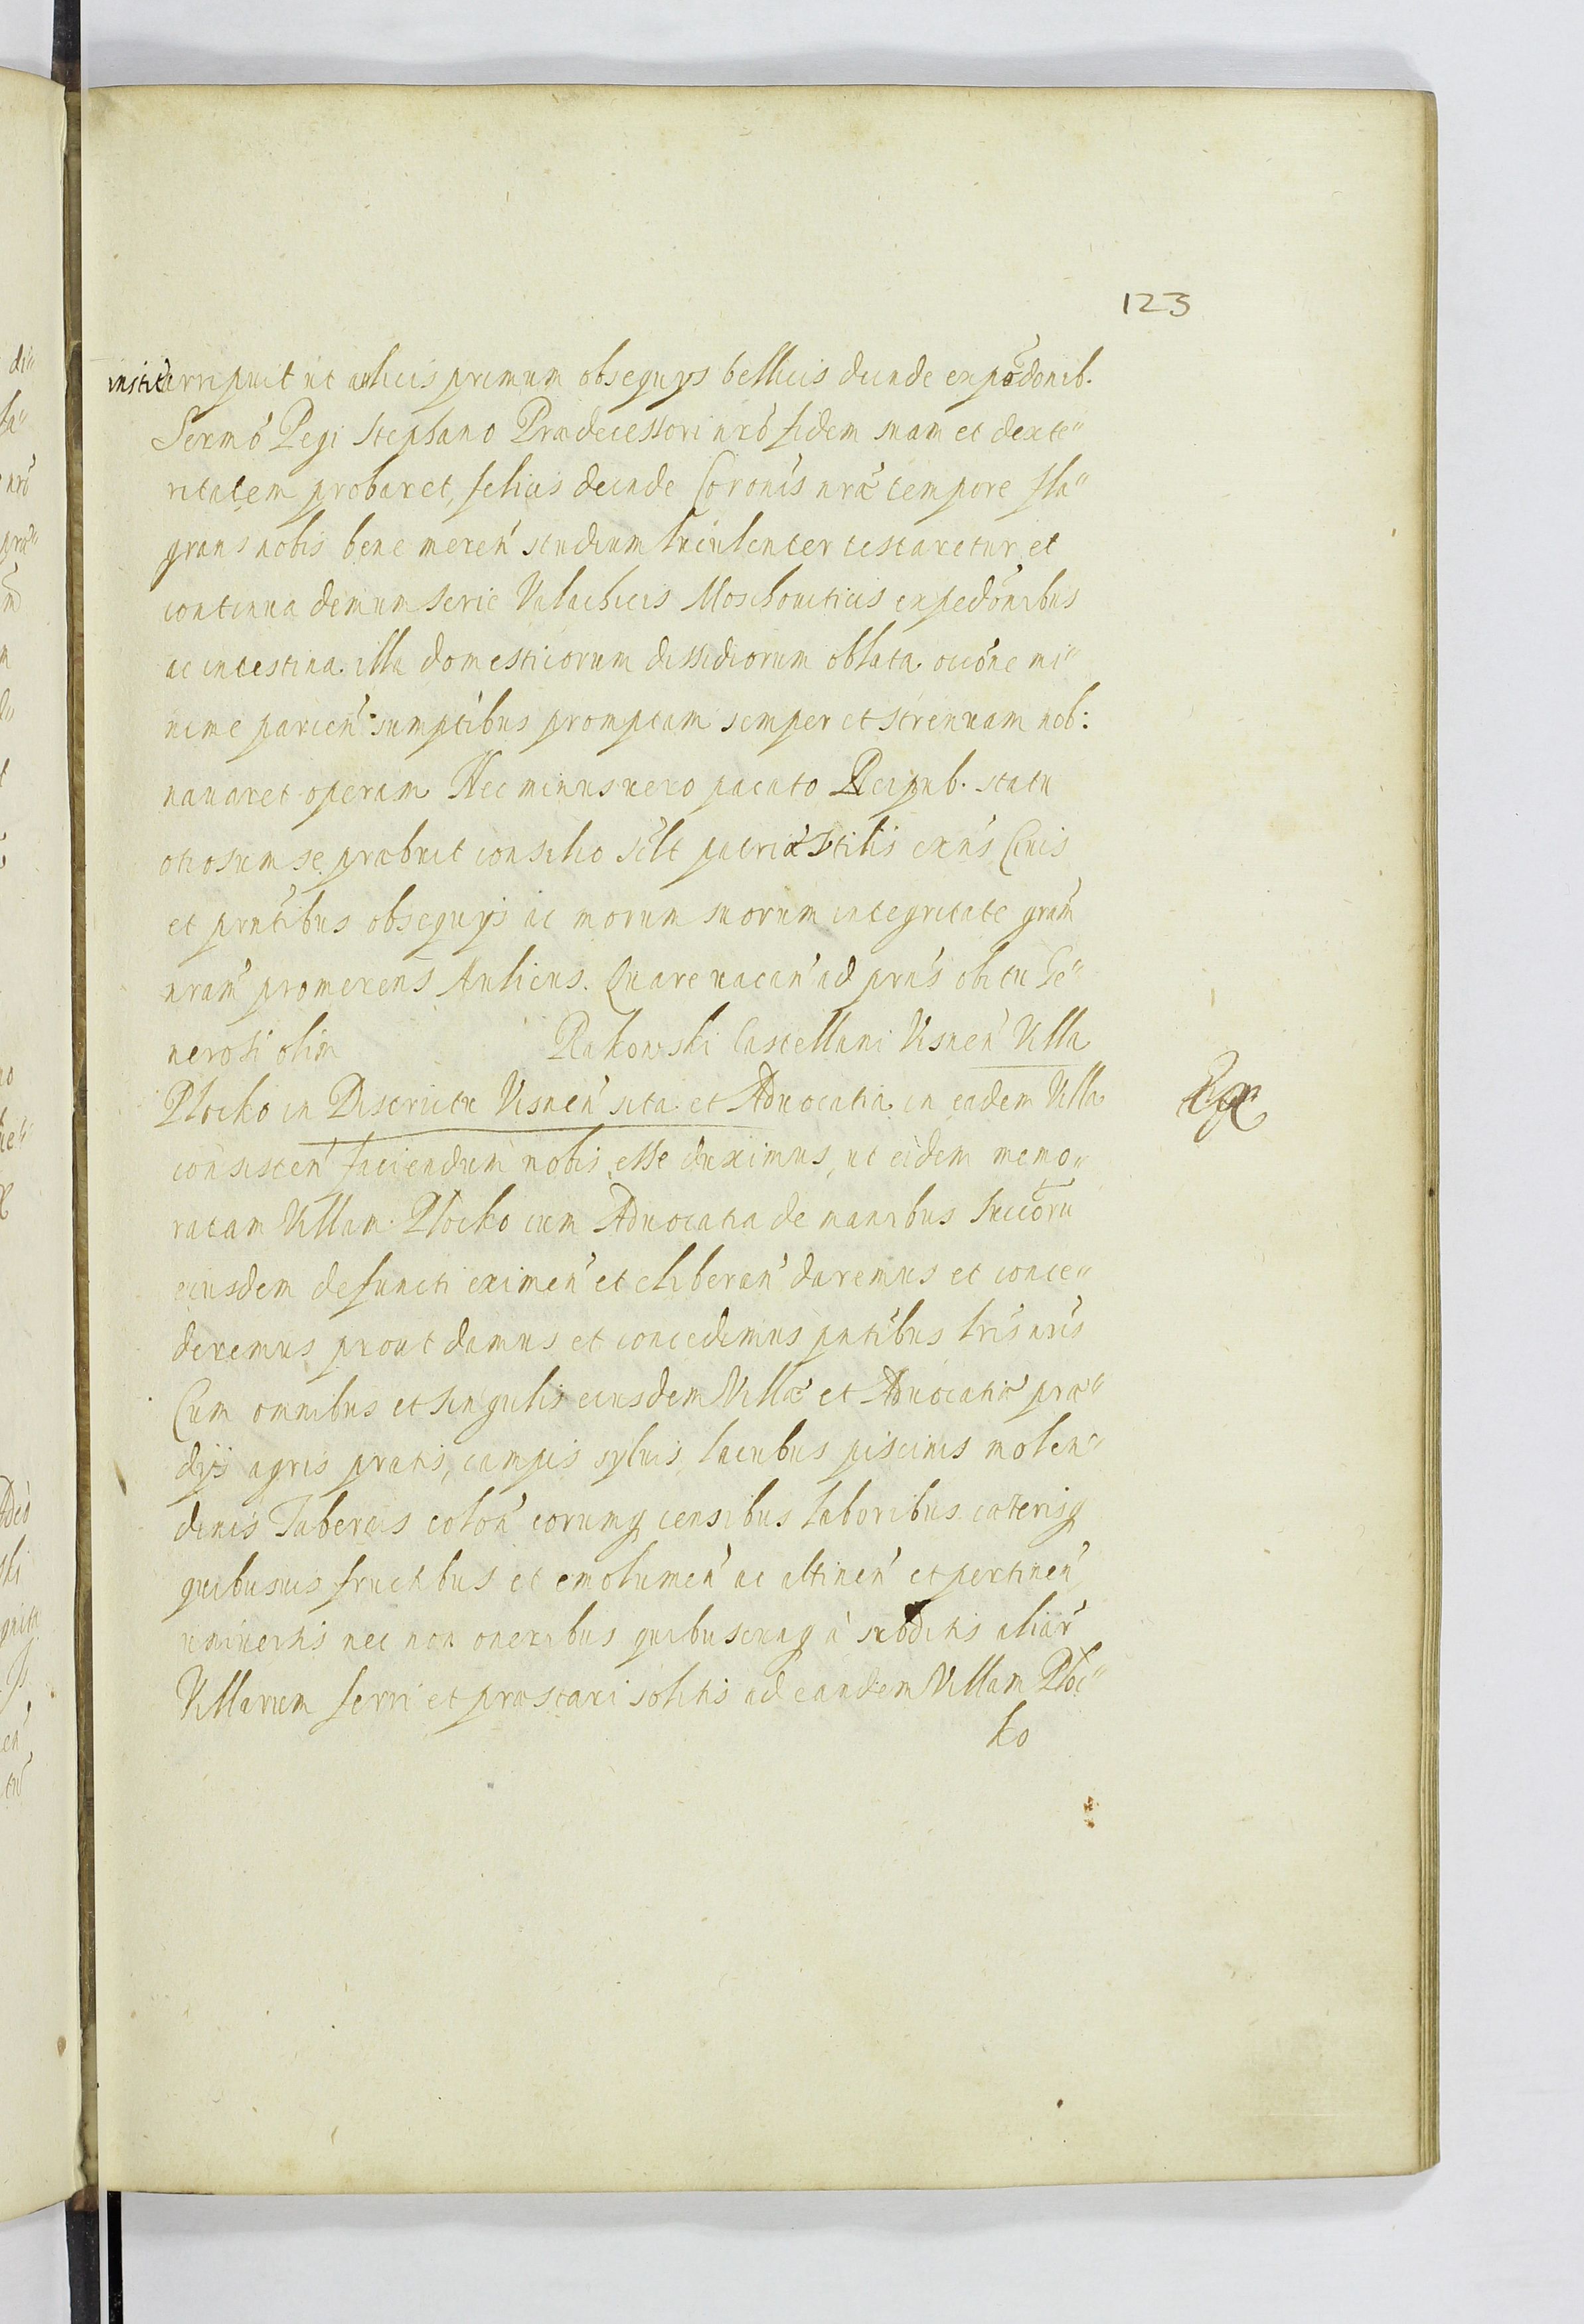 123
instit arripuit ut aulicis primum obsequys bellicis deinde expedonib.
Sermo Regi Stephano Prædecessori nro fidem suam et dexte"
ritatem probaret, felicis deinde Coronis nræ tempore fla"
grans nobis bene meren studium luculenter testaretur et
continua demum serie Valachicis Moschoviticis expedonibus
ac intestina illa domesticorum dissidiorum oblata occone mi"
nime parcen sumptibus promptam semper et strenuam nob:
navaret operam Nec minus uero pacato Reipub. statu
otiosum se præbuit consilio silt patriæ Vtilis exns Ciuis
et prntibus obsequys ac morum suorum integritate gram
nram promerens Aulicus. Quare uacan ad prns obitu Ge"
nerosi olim Rakowski Castellani Visnen Villa
Plocko in Districtu Visnen sita et Aduocatia in eadem Villa
consisten faciendum nobis esse duximus, ut eidem memo"
ratam Villam Plocko cum Aduocatia de manibus Succoru
eiusdem defuncti eximen et eliberan daremus et conce"
deremus prout damus et concedimus pntibus lris nris
Cum omnibus et singulis eiusdem Villæ et Aduocatiæ præ"
dijs agris pratis, campis syluis, lacubus piscinis molen"
dinis Tabernis colon eorumq censibus laboribus cæterisq
quibusuis fructibus et emolumen ac attinen et pertinen
uniuersis nec non oneribus quibuscunq à subditis aliar
Villarum ferri et præstari solitis ad eandem Villam Ploc"
ko